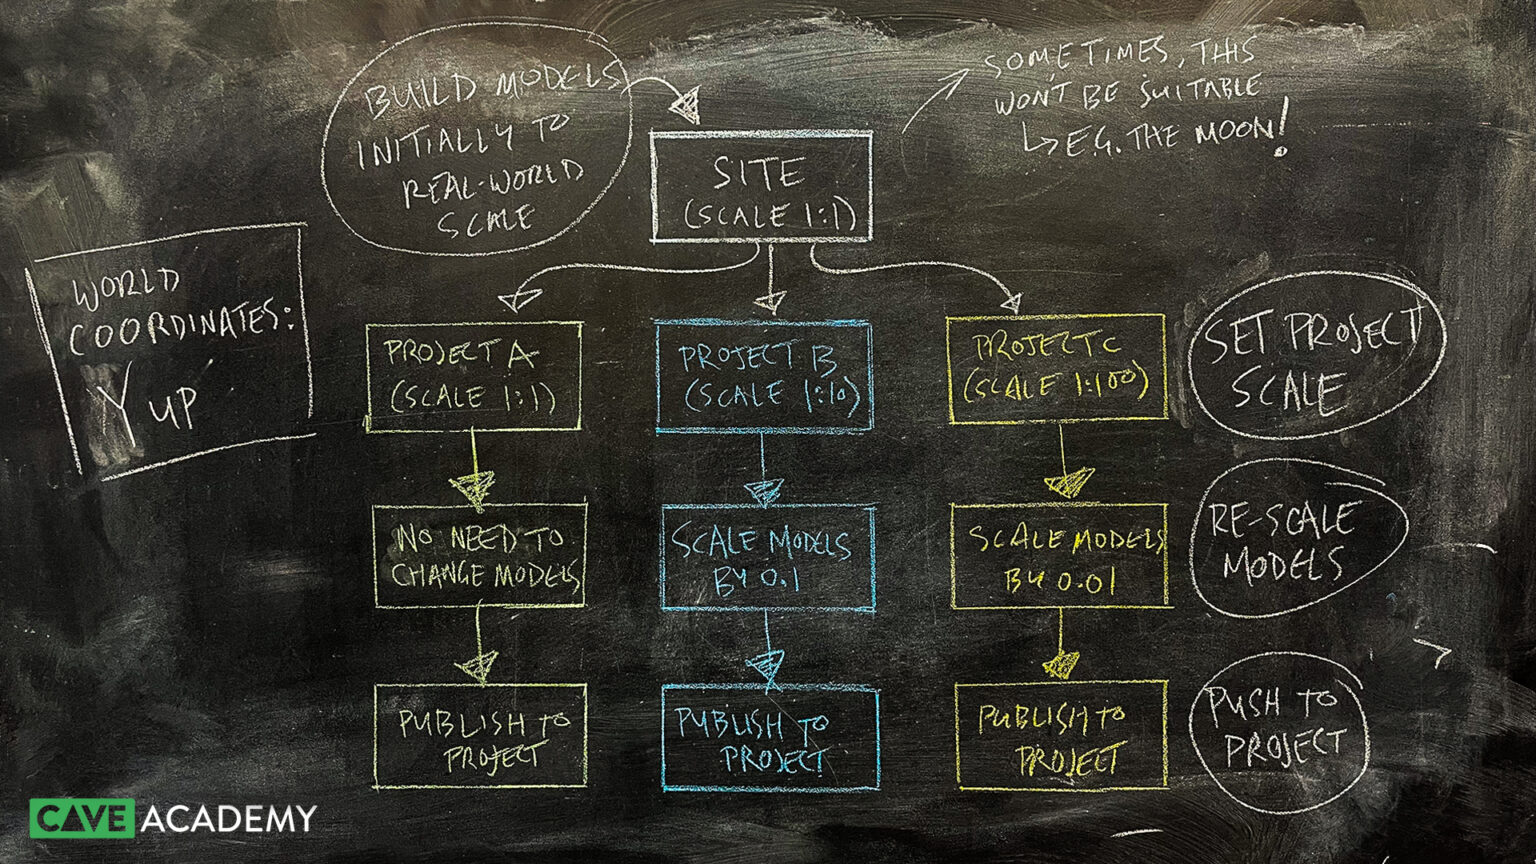 BUILD MODELS
INITIALLY TO
REAL-WORLD
SCALE
SOMETIMES, THIS
WON'T BE SUITABLE
↳ E.G. THE MOON!
SITE
(SCALE 1:1)
WORLD
COORDINATES:
Y UP
PROJECT A
(SCALE 1:1)
PROJECT B
(SCALE 1:10)
PROJECT C
(SCALE 1:100)
SET PROJECT
SCALE
NO NEED TO
CHANGE MODELS
SCALE MODELS
BY 0.1
SCALE MODELS
BY 0.01
RE-SCALE
MODELS
PUBLISH TO
PROJECT
PUBLISH TO
PROJECT
PUBLISH TO
PROJECT
PUSH TO
PROJECT
CAVE ACADEMY